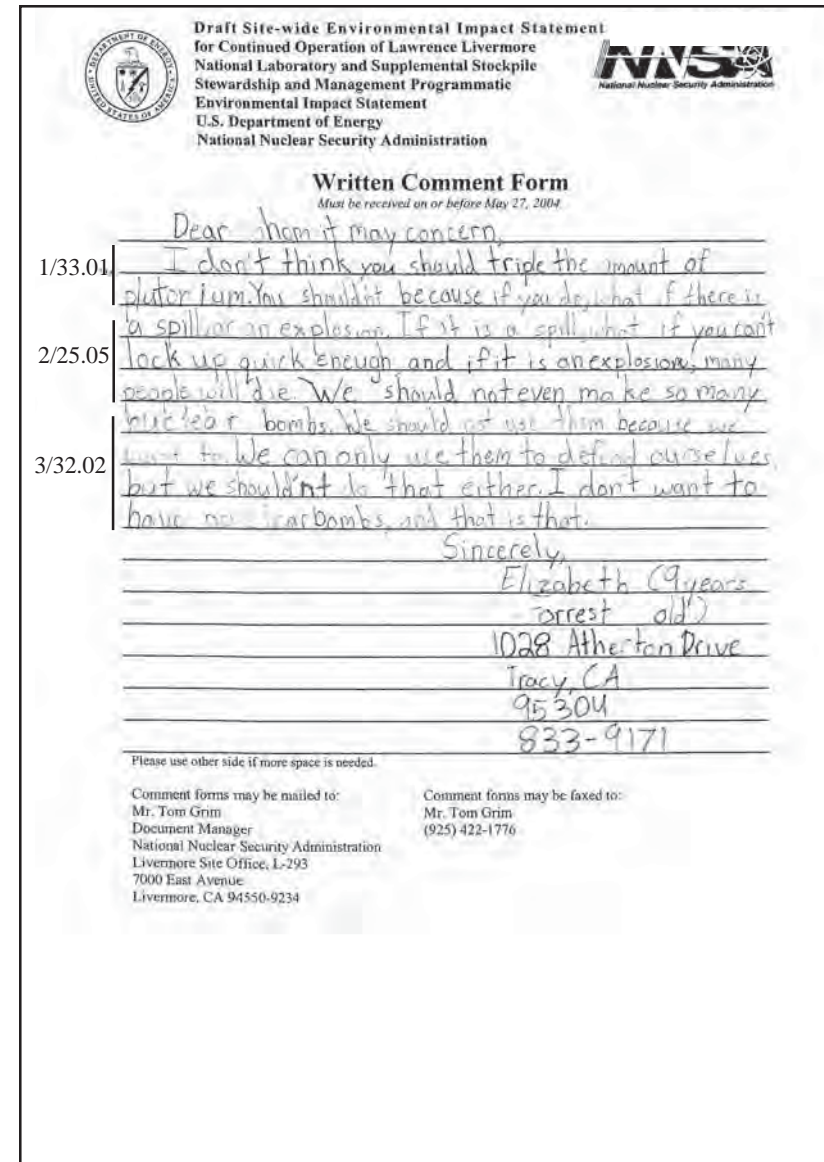 Draft Site-wide Environmental Impact Statement
for Continued Operation of Lawrence Livermore
National Laboratory and Supplemental Stockpile
Stewardship and Management Programmatic
Environmental Impact Statement
U.S. Department of Energy
National Nuclear Security Administration
DEPARTMENT OF ENERGY
UNITED STATES OF AMERICA
NNSA
National Nuclear Security Administration
Written Comment Form
Must be received on or before May 27, 2004
Dear hom it may concern,
1/33.01
I don't think you should triple the mount of
plutonium. You shouldn't because if you do, what if there is
a spill or an explosion. If it is a spill, what if you can't
2/25.05
lock up quick enough and if it is an explosion, many
people will die. We should not even make so many
nuclear bombs. We should not use them because we
3/32.02
want to. We can only use them to defend ourselves,
but we shouldn't do that either. I don't want to
have bombs, and that is that.
Sincerely,
Elizabeth (9 years
orrest old)
1028 Atherton Drive
Tracy, CA
95304
833-9171
Please use other side if more space is needed.
Comment forms may be mailed to:
Mr. Tom Grim
Document Manager
National Nuclear Security Administration
Livermore Site Office, L-293
7000 East Avenue
Livermore, CA 94550-9234
Comment forms may be faxed to:
Mr. Tom Grim
(925) 422-1776